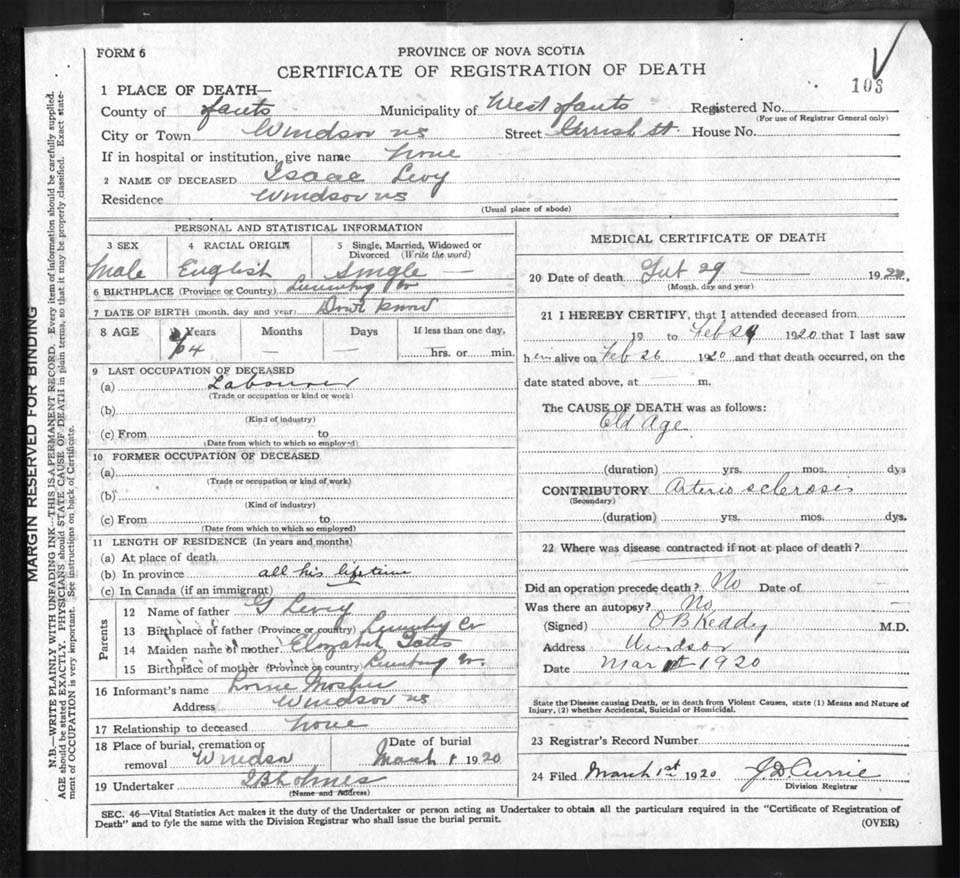 FORM 6
PROVINCE OF NOVA SCOTIA
CERTIFICATE OF REGISTRATION OF DEATH
103
1 PLACE OF DEATH—
County of Hants Municipality of West Hants Registered No.
(For use of Registrar General only)
City or Town Windsor NS Street Gerrish St. House No.
If in hospital or institution, give name None
2 NAME OF DECEASED Isaac Levy
Residence Windsor NS
(Usual place of abode)
PERSONAL AND STATISTICAL INFORMATION
3 SEX 4 RACIAL ORIGIN 5 Single, Married, Widowed or Divorced (Write the word)
Male English Single —
6 BIRTHPLACE (Province or Country) Lunenburg Co
7 DATE OF BIRTH (month, day and year) Don't know
8 AGE Years Months Days If less than one day,
— — hrs. or min.
9 LAST OCCUPATION OF DECEASED
(a) Labourer
(Trade or occupation or kind or work)
(b)
(Kind of industry)
(c) From to
(Date from which to which so employed)
10 FORMER OCCUPATION OF DECEASED
(a)
(Trade or occupation or kind of work)
(b)
(Kind of industry)
(c) From to
(Date from which to which so employed)
11 LENGTH OF RESIDENCE (In years and months)
(a) At place of death
(b) In province all his lifetime
(c) In Canada (if an immigrant)
Parents
12 Name of father G Levy
13 Birthplace of father (Province or country) Lunenburg Co
14 Maiden name of mother Elizabeth
15 Birthplace of mother (Province or country) Lunenburg Co.
16 Informant's name Mosher
Address Windsor NS
17 Relationship to deceased None
18 Place of burial, cremation or removal Windsor Date of burial March 1 1920
19 Undertaker Holmes
(Name and Address)
MEDICAL CERTIFICATE OF DEATH
20 Date of death Feb 29 — 1920
(Month, day and year)
21 I HEREBY CERTIFY, that I attended deceased from
19 to Feb 29 1920 that I last saw
him alive on Feb 26 1920 and that death occurred, on the
date stated above, at — m.
The CAUSE OF DEATH was as follows:
Old Age
(duration) yrs. mos. dys
CONTRIBUTORY Arterio sclerosis
(Secondary)
(duration) yrs. mos. dys.
22 Where was disease contracted if not at place of death?
Did an operation precede death? No Date of —
Was there an autopsy? No —
(Signed) O B Keddy M.D.
Address Windsor
Date Mar 1st 1920
State the Disease causing Death, or in death from Violent Causes, state (1) Means and Nature of
Injury, (2) whether Accidental, Suicidal or Homicidal.
23 Registrar's Record Number
24 Filed March 1st 1920 J D Currie
Division Registrar
SEC. 46—Vital Statistics Act makes it the duty of the Undertaker or person acting as Undertaker to obtain all the particulars required in the "Certificate of Registration of
Death" and to fyle the same with the Division Registrar who shall issue the burial permit.
(OVER)
MARGIN RESERVED FOR BINDING
N.B.—WRITE PLAINLY WITH UNFADING INK—THIS IS A PERMANENT RECORD. Every item of information should be carefully supplied.
AGE should be stated EXACTLY. PHYSICIANS should STATE CAUSE OF DEATH in plain terms, so that it may be properly classified. Exact state-
ment of OCCUPATION is very important. See instructions on back of Certificate.